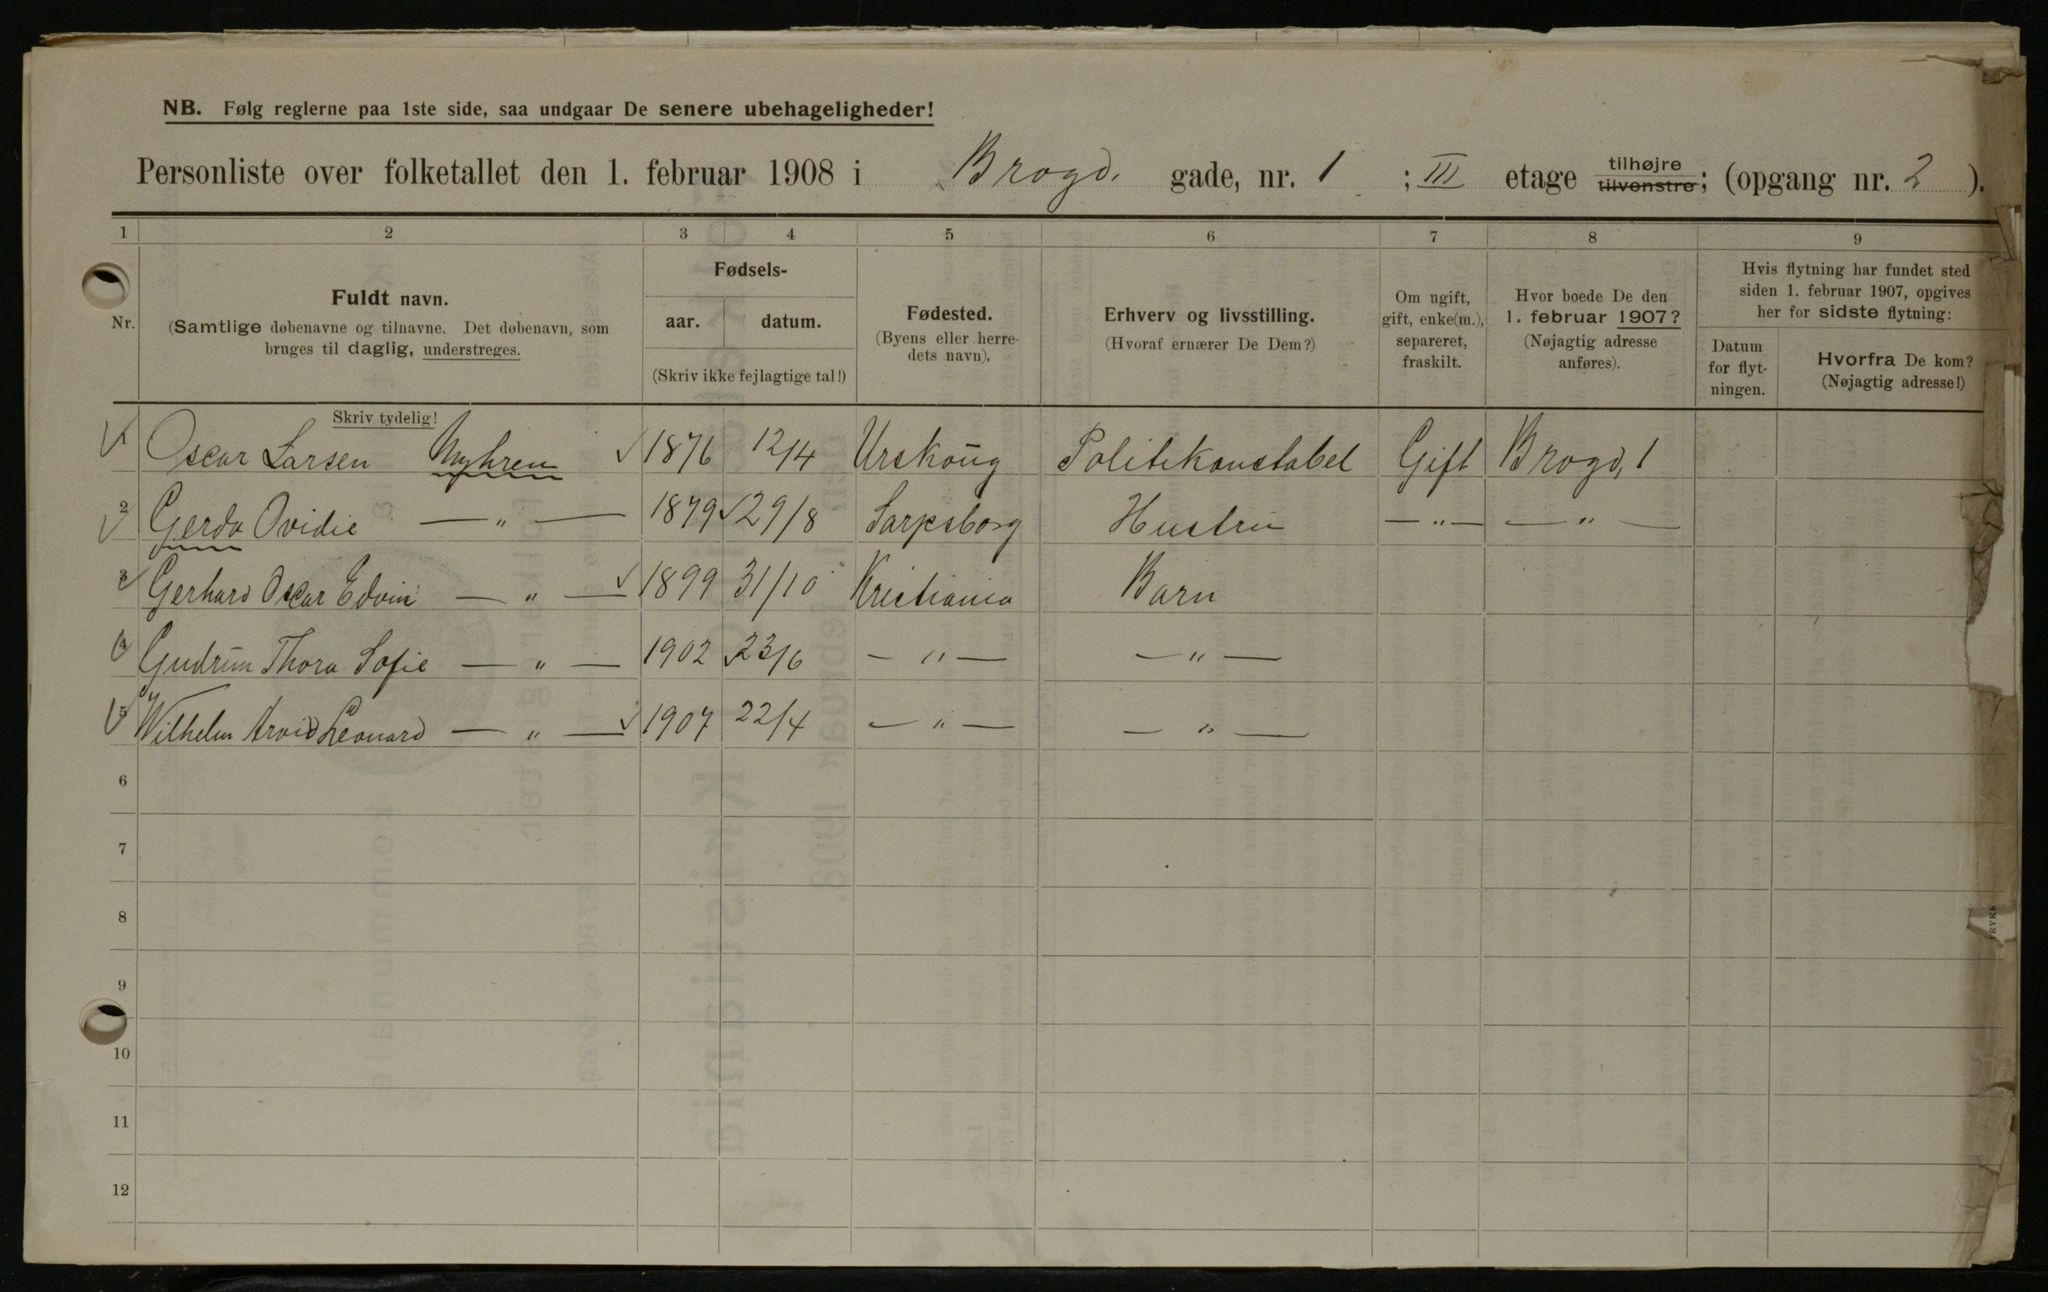 NB. Følg reglerne paa 1ste side, saa undgaar De senere ubehageligheder!
Personliste over folketallet den 1. februar 1908 i Brogd. gade, nr. 1 ; III etage tilhøjre tilvenstre; (opgang nr. 2 ).
1 2 3 4 5 6 7 8 9
Nr.
Fuldt navn.
(Samtlige døbenavne og tilnavne. Det døbenavn, som
bruges til daglig, understreges.
Fødsels-
aar. datum.
(Skriv ikke fejlagtige tal!)
Fødested.
(Byens eller herre-
dets navn).
Erhverv og livsstilling.
(Hvoraf ernærer De Dem?)
Om ugift,
gift, enke(m.),
separeret,
fraskilt.
Hvor boede De den
1. februar 1907?
(Nøjagtig adresse
anføres).
Hvis flytning har fundet sted
siden 1. februar 1907, opgives
her for sidste flytning:
Datum
for flyt-
ningen.
Hvorfra De kom?
(Nøjagtig adresse!)
Skriv tydelig!
1 Oscar Larsen Myhren 1876 12/4 Urskoug Politikonstabel Gift Brogd, 1
2 Gerda Ovidie — " — 1879 29/8 Sarpsborg Hustru — " — — " —
3 Gerhard Oscar Edvin — " — 1899 31/10 Kristiania Barn
4 Gudrun Thora Sofie — " — 1902 23/6 — " — — " —
5 Wilhelm Arvid Leonard — " — 1907 22/4 — " — — " —
6
7
8
9
10
11
12